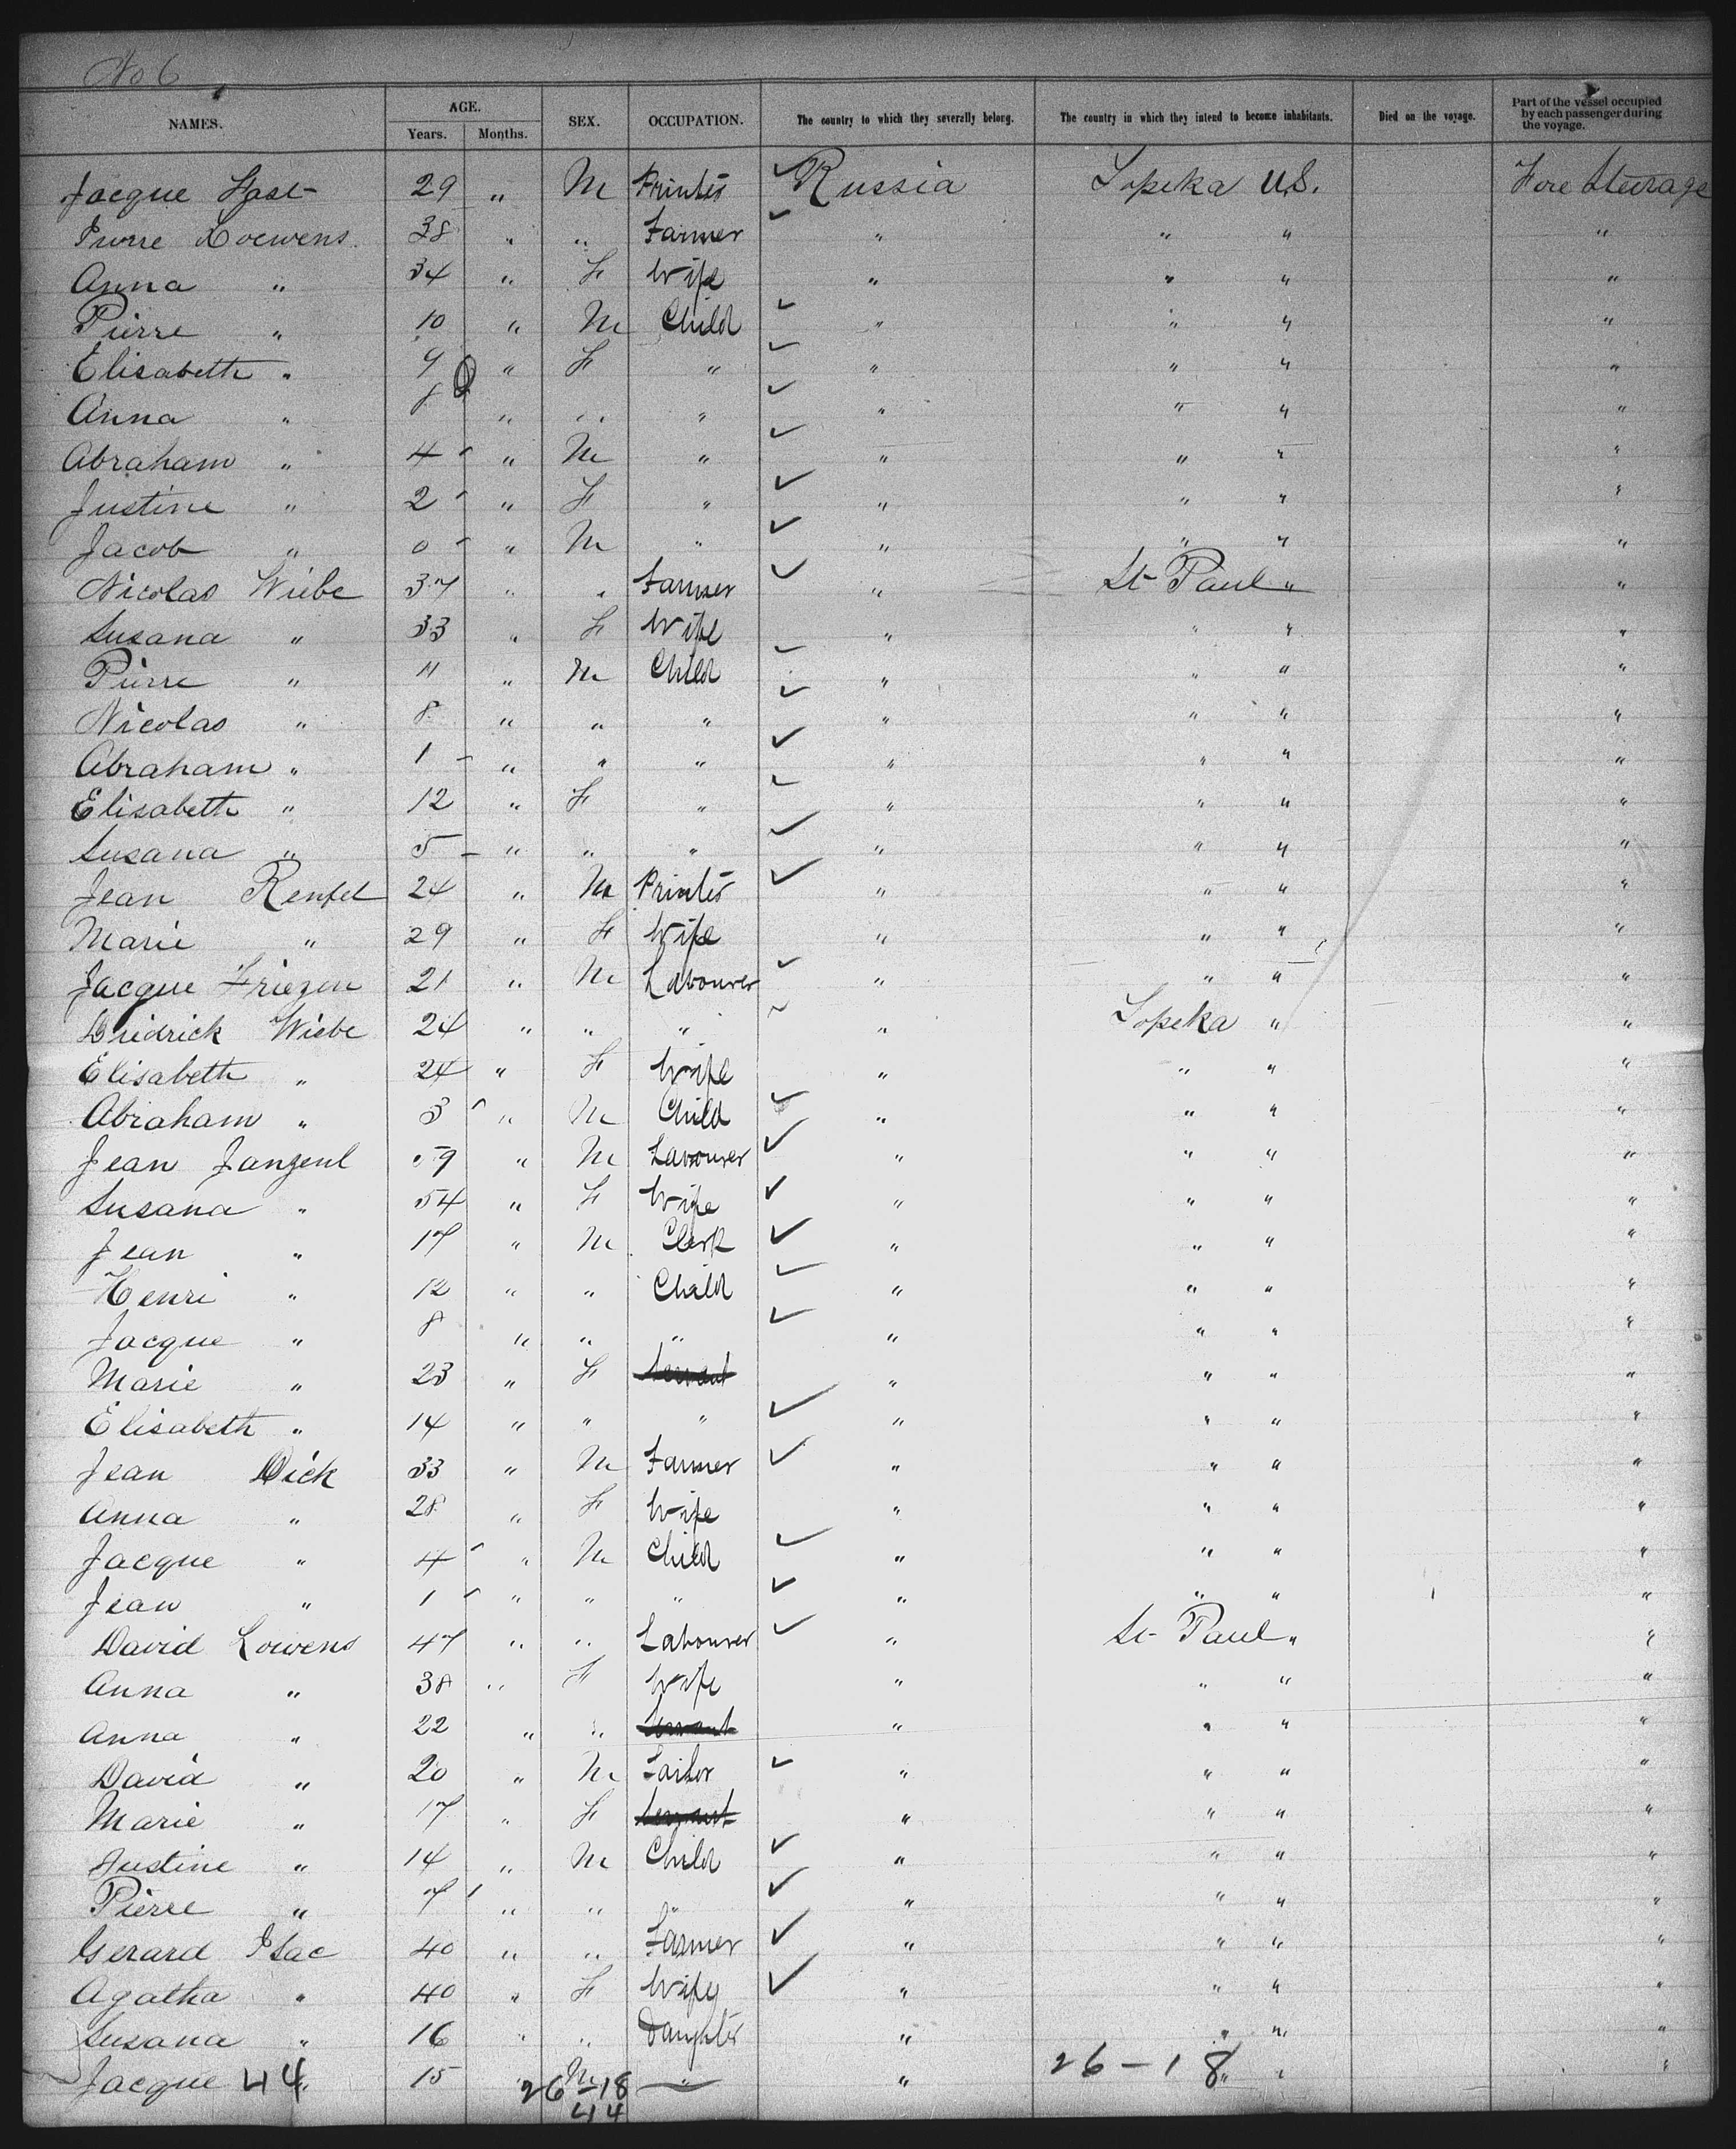 No 6
NAMES. AGE. Years. Months. SEX. OCCUPATION. The country to which they severally belong. The country in which they intend to become inhabitants. Died on the voyage. Part of the vessel occupied by each passenger during the voyage.
Jacque Fast 29 " M Printer Russia Topeka U.S. Fore Steerage
Pierre Loewens 38 " " Farmer " " " "
Anna " 34 " F Wife " " " "
Pierre " 10 " M Child " " " "
Elisabeth " 9 " F " " " " "
Anna " 8 " " " " " " "
Abraham " 4 " M " " " " "
Justine " 2 " F " " " " "
Jacob " 0 " M " " " " "
Nicolas Wiebe 37 " " Farmer " St Paul " "
Susana " 33 " F Wife " " " "
Pierre " 11 " M Child " " " "
Nicolas " 8 " " " " " " "
Abraham " 1 " " " " " " "
Elisabeth " 12 " F " " " " "
Susana " 5 " " " " " " "
Jean Renpel 24 " M Printer " " " "
Marie " 29 " F Wife " " " "
Jacque Friezen 21 " M Labourer " " " "
Diedrick Wiebe 24 " " " " Topeka " "
Elisabeth " 24 " F Wife " " " "
Abraham " 3 " M Child " " " "
Jean Janzenl 59 " M Labourer " " " "
Susana " 54 " F Wife " " " "
Jean " 17 " M Clerk " " " "
Henri " 12 " " Child " " " "
Jacque " 8 " " " " " " "
Marie " 23 " F Servant " " " "
Elisabeth " 14 " " " " " " "
Jean Dick 33 " M Farmer " " " "
Anna " 28 " F Wife " " " "
Jacque " 4 " M Child " " " "
Jean " 1 " " " " " " "
David Lowens 47 " " Labourer " St Paul " "
Anna " 38 " F Wife " " " "
Anna " 22 " " Servant " " " "
David " 20 " M Tailor " " " "
Marie " 17 " F Servant " " " "
Justine " 14 " M Child " " " "
Pierre " 7 " " " " " " "
Gerard Isac 40 " " Farmer " " " "
Agatha " 40 " F Wife " " " "
Susana " 16 " " Daughter " " " "
Jacque " 44 15 " M " " " " "
26-18 26-18
44